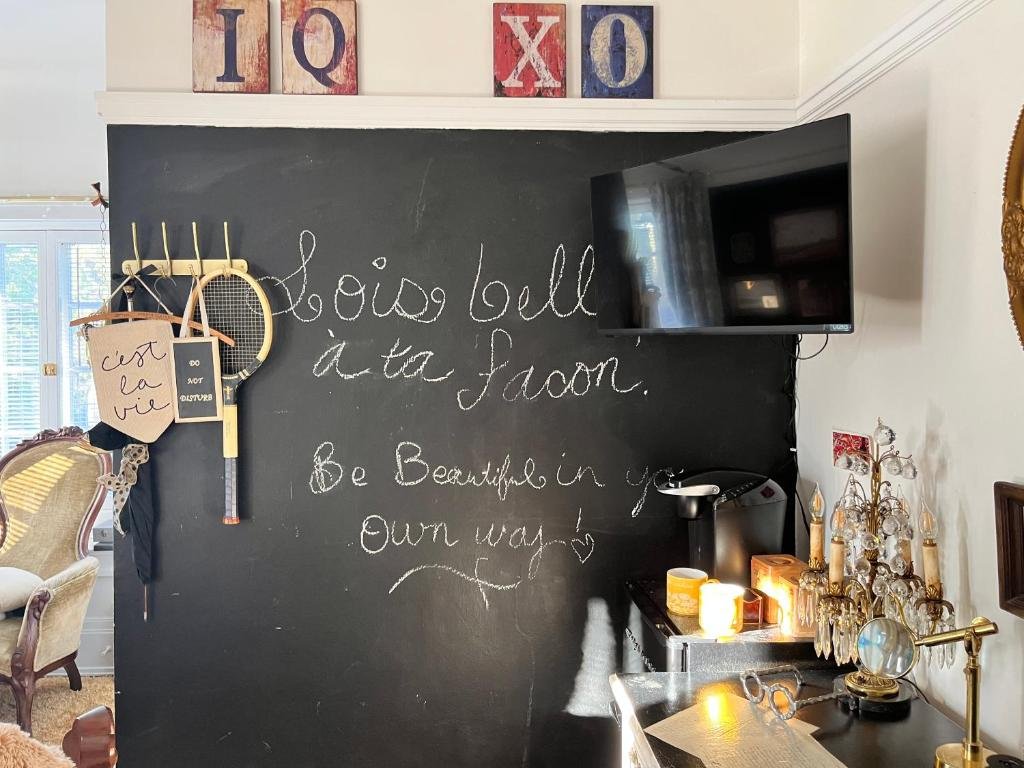 I Q X O
Sois bell
à ta facon!
c'est
la
vie
DO
NOT
DISTURB
Be Beautiful in yo
Own way!